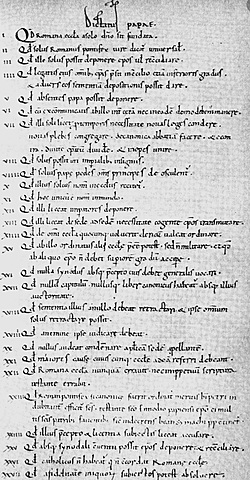 Dictatus papae.
I Qd Romana eccla asolo dno sit fundata.
II Qd solus Romanus pontifex iure dicat universal.
III Qd ille solus possit deponere epos ul recciliare.
IIII Qd legatus eius omib; epis psit inconcilio etia inferioris gradus.
& adversus eos sententia depositionis possit dare.
V Qd absentes papa possit deponere.
VI Qd cu excomunicatis ab illo int cetera nec in eade domo debem manere.
VII Qd illi soli licet p temporis necessitate novas leges condere.
novas plebes congregare. de canonica abbatia facere. & econtra.
divite epatu dividere. & inopes unire.
VIII Qd solus possit uti imperialib; insigniis.
VIIII Qd solius papae pedes oms principes deosculent.
X Qd illius solius nom in ecclis recitet.
XI Qd hoc unicu e nom in mundo.
XII Qd illi liceat imperatores deponere.
XIII Qd illi liceat desede adsede necessitate cogente epos transmutare.
XIIII Qd de omi eccla quocunq; voluerit clericu valeat ordinare.
XV Qd abillo ordinatus alii eccle peee potest. sed n militare. & qd
ab aliquo epo n debet superiore gradu accipe.
XVI Qd nulla synodus absq; pcepto eius debet generalis vocari.
XVII Qd nullu capitulu nullusq; liber canonicus habeat absq; illius
auctoritate.
XVIII Qd sententia illius a nullo debeat retractari & ipse omniu
solus retractare possit.
XVIIII Qd anemine ipse iudicari debeat.
XX Qd nullus audeat condemnare aplica sede apellante.
XXI Qd maiores cause cuiuscunq; eccle adea referri debeant.
XXII Qd Romana eccla nunqua erravit nec inppetuu scriptura
testante errabit.
XXIII Qd Romanus pontifex si canonice fuerit ordinatus meritis b petri
indubitant efficit scs. testante sco Ennodio papiensi epo ei multis
scis patrib; faventib; sic indecretis beati symachi pp continet.
XXIIII Qd illius pcepto & licentia subiectis liceat accusare.
XXV Qd absq; synodali conventu possit epos deponere & recciliare.
XXVI Qd catholicus n habeat q n cordat Romane eccle.
XXVII Qd afidelitate iniquoru subiectos potest absolvere.